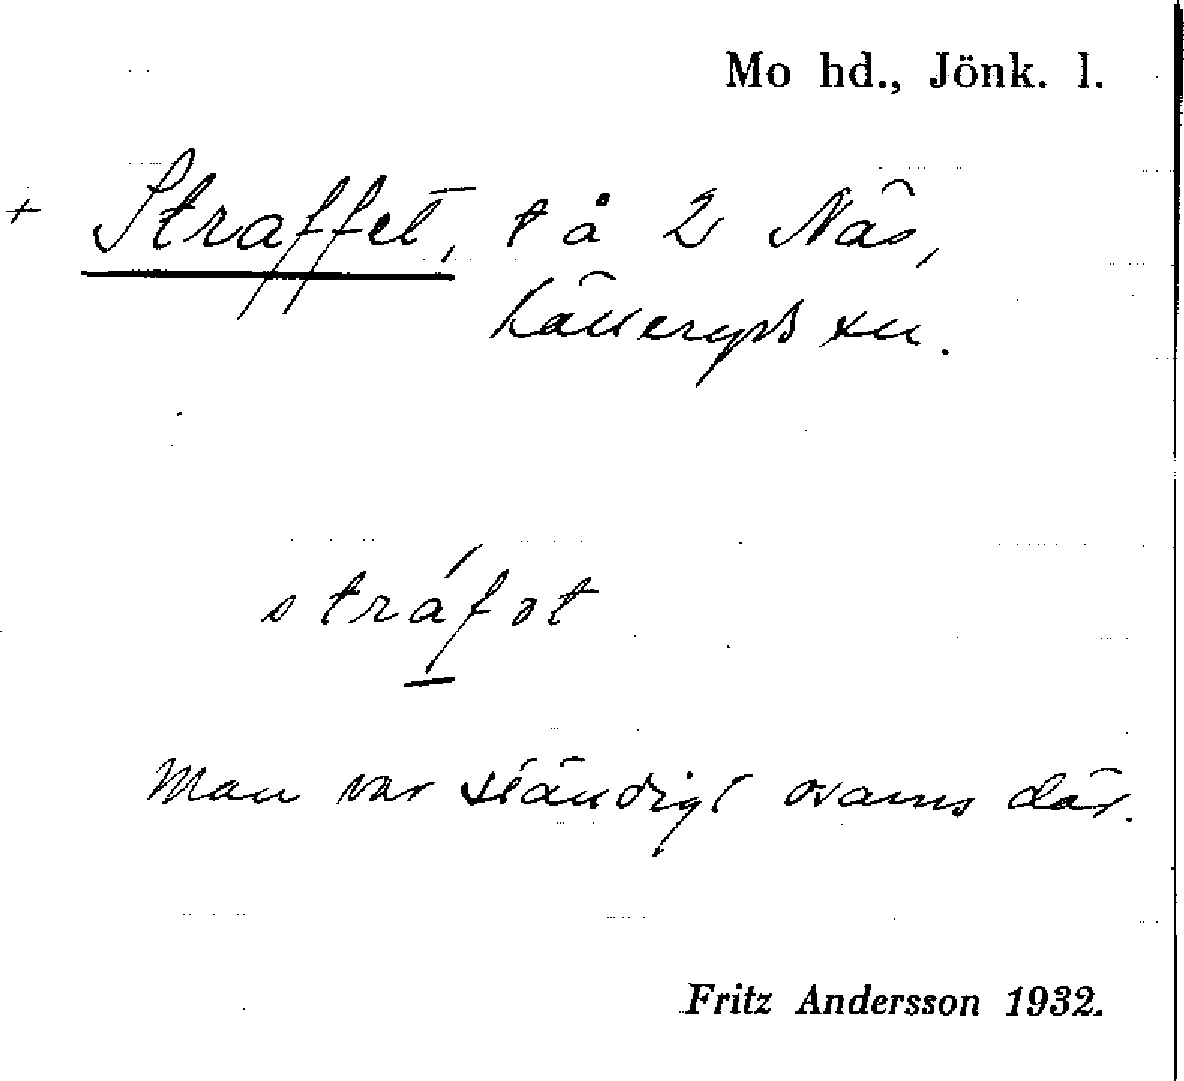 Mo hd., Jönk. l.
+ Straffet, t å 2 Näs,
Källeryds sn.
stráfət
Man var ständigt osams där.
Fritz Andersson 1932.